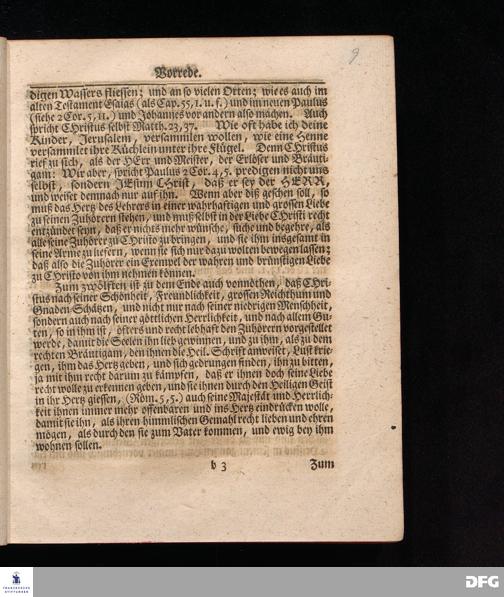 9
Vorrede.
digen Wassers fliessen; und an so vielen Orten; wie es auch im
alten Testament Esaias (als Cap. 55, 1. u. f.) und im neuen Paulus
(siehe 2 Cor. 5, 11.) und Johannes vor andern also machen. Auch
spricht Christus selbst Matth. 23, 37. Wie oft habe ich deine
Kinder, Jerusalem, versammlen wollen, wie eine Henne
versammlet ihre Küchlein unter ihre Flügel. Denn CHristus
rief zu sich, als der HErr und Meister, der Erlöser und Bräuti-
gam: Wir aber, spricht Paulus 2 Cor. 4, 5. predigen nicht uns
selbst, sondern JEsum CHrist, daß er sey der HERR,
und weiset demnach nur auf ihn. Wenn aber diß geschen soll, so
muß das Hertz des Lehrers in einer wahrhaftigen und grossen Liebe
zu seinen Zuhörern stehen, und muß selbst in der Liebe CHristi recht
entzündet seyn, daß er nichts mehr wünsche, suche und begehre, als
alle seine Zuhörer zu CHristo zu bringen, und sie ihm insgesamt in
seine Arme zu liefern, wenn sie sich nur dazu wolten bewegen lassen;
daß also die Zuhörer ein Exempel der wahren und brünstigen Liebe
zu CHristo von ihm nehmen können.
Zum zwölften ist zu dem Ende auch vonnöthen, daß CHri-
stus nach seiner Schönheit, Freundlichkeit, grossen Reichthum und
Gnaden-Schätzen, und nicht nur nach seiner niedrigen Menschheit,
sondern auch nach seiner göttlichen Herrlichkeit, und nach allem Gu-
ten, so in ihm ist, öfters und recht lebhaft den Zuhörern vorgestellet
werde, damit die Seelen ihn lieb gewinnen, und zu ihm, als zu dem
rechten Bräutigam, den ihnen die Heil. Schrift anweiset, Lust krie-
gen, ihm das Hertz geben, und sich gedrungen finden, ihn zu bitten,
ja mit ihm recht darum zu kämpfen, daß er ihnen doch seine Liebe
recht wolle zu erkennen geben, und sie ihnen durch den Heiligen Geist
in ihr Hertz giessen, (Röm. 5, 5.) auch seine Majestät und Herrlich-
keit ihnen immer mehr offenbaren und ins Hertz eindrücken wolle,
damit sie ihn, als ihren himmlischen Gemahl recht lieben und ehren
mögen, als durch den sie zum Vater kommen, und ewig bey ihm
wohnen sollen.
b 3 Zum
FRANCKESCHE
STIFTUNGEN
DFG